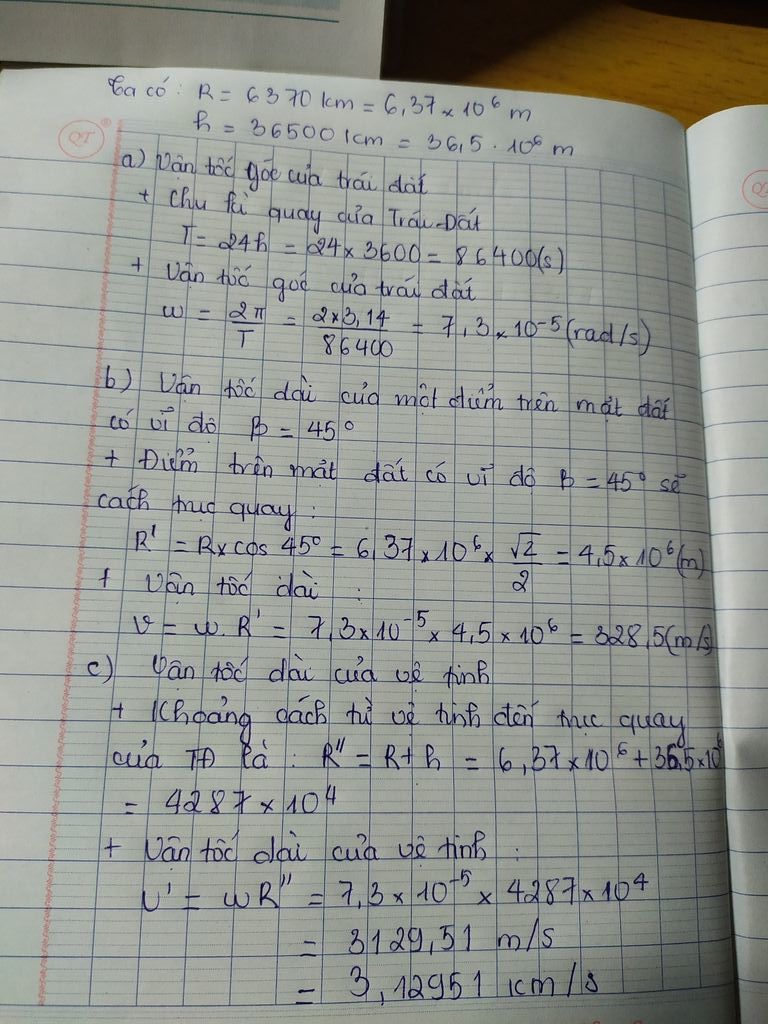 Ta có: R = 6370 km = 6,37 × 10⁶ m
h = 36500 km = 36,5 . 10⁶ m
QT
a) Vận tốc góc của trái đất
+ Chu kì quay của Trái Đất
T = 24h = 24 × 3600 = 86400(s)
+ Vận tốc góc của trái đất
w = 2π/T = 2×3,14/86400 = 7,3 × 10⁻⁵ (rad/s)
b) Vận tốc dài của một điểm trên mặt đất
có vĩ độ β = 45°
+ Điểm trên mặt đất có vĩ độ β = 45° sẽ
cách trục quay :
R' = R × cos 45° = 6,37 × 10⁶ × √2/2 = 4,5 × 10⁶ (m)
+ Vận tốc dài :
v = w. R' = 7,3 × 10⁻⁵ × 4,5 × 10⁶ = 328,5(m/s)
c) Vận tốc dài của vệ tinh
+ Khoảng cách từ vệ tinh đến trục quay
của TĐ là : R'' = R + h = 6,37 × 10⁶ + 36,5 × 10⁶
= 4287 × 10⁴
+ Vận tốc dài của vệ tinh :
v' = wR'' = 7,3 × 10⁻⁵ × 4287 × 10⁴
= 3129,51 m/s
= 3,12951 km/s